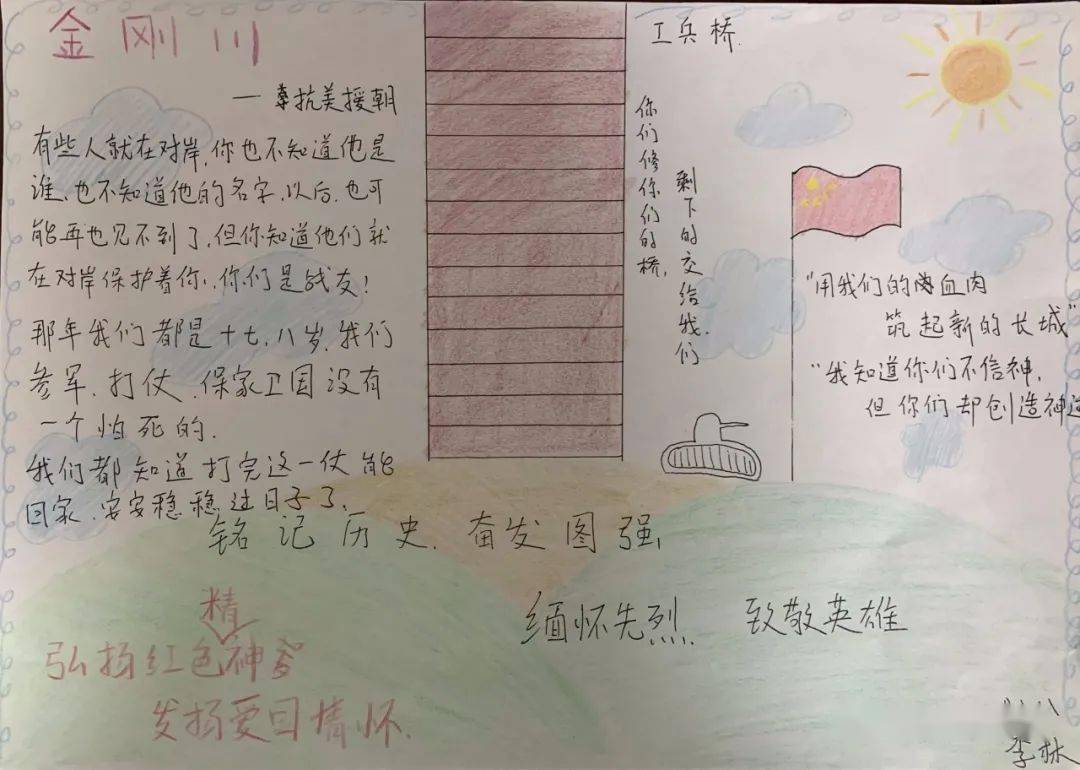 金刚川
— 抗美援朝
有些人就在对岸,你也不知道他是
谁、也不知道他的名字,以后,也可
能再也见不到了,但你知道他们就
在对岸保护着你,你们是战友!
那年我们都是十七、八岁,我们
参军,打仗、保家卫国没有
一个怕死的.
我们都知道打完这一仗能
回家、安安稳稳过日子了.
工兵桥.
你们修你们的桥,
剩下的交给我们
"用我们的血肉
筑起新的长城"
"我知道你们不信神,
但你们却创造神
铭记历史,奋发图强,
缅怀先烈 致敬英雄
弘扬红色精神
发扬爱国情怀.
李林